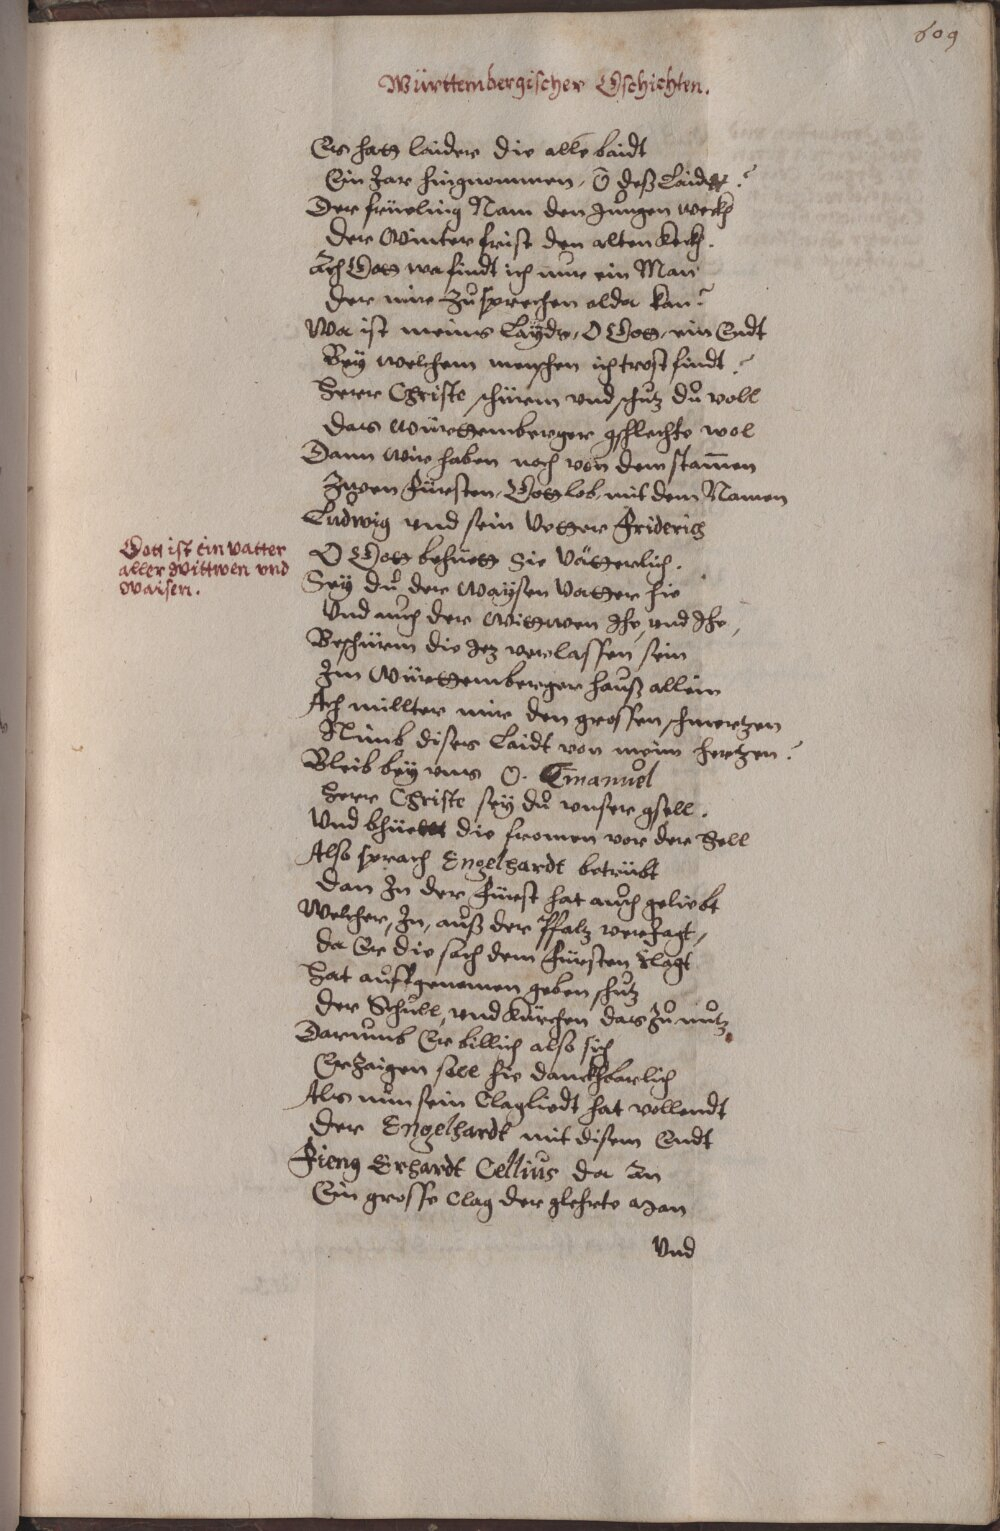 609
Württembergischer Gschichten.
Es hatt laider die alle baidt
Ein Jar hingnommen, O deß Laidtt?
Der früeling Nam den Jungen weckh
der Winter frist den alten keckh.
Ach Gott wa findt ich nur ein Man
der mir Zusprechen alda kan?
Wa ist meins Laÿds, O Gott, ein Endt
Beÿ welchem menschen ich trost findt?
Herr Christe schürm und schutz du voll
das Württemberger gschlechte wol
Dann wir haben noch von dem stammen
Zwen Fürsten, Gott lob, mit dem Namen
Ludwig und sein Vetter Friderich
Gott ist ein vatter
aller Wittwen und
Waisen.
O Gott behüett Sie vätterlich.
Seÿ du der Waÿsen Vatter hie
Und auch der Wittwen Ihe, und Ihe,
Beschürm die Jez verlassen sein
Im Württemberger hauß allein
Ach millter mir den grossen schmertzen
Nimb dises Laidt von meim hertzen?
Bleib beÿ uns O. Emanuel
Herr Christe seÿ du unser gsell.
Und bhüett die fromen vor der Hell
Also sprach Engelhardt betrübt
dan In der Fürst hat auch geliebt
Welcher, In, auß der Pfalz verjagt,
da Er die sach dem Fürsten klagt
Hat auffgenomen geben schutz
der Schull, und Kürchen das Zu nutz
Darumb Er billich also sich
Erzaigen soll hie danckhbarlich
Als nun sein Clagliedt hat vollendt
der Engelhardt mit disem Endt
Fieng Erhardt Cellius da An
Ein grosse Clag der glehrte Man
Und